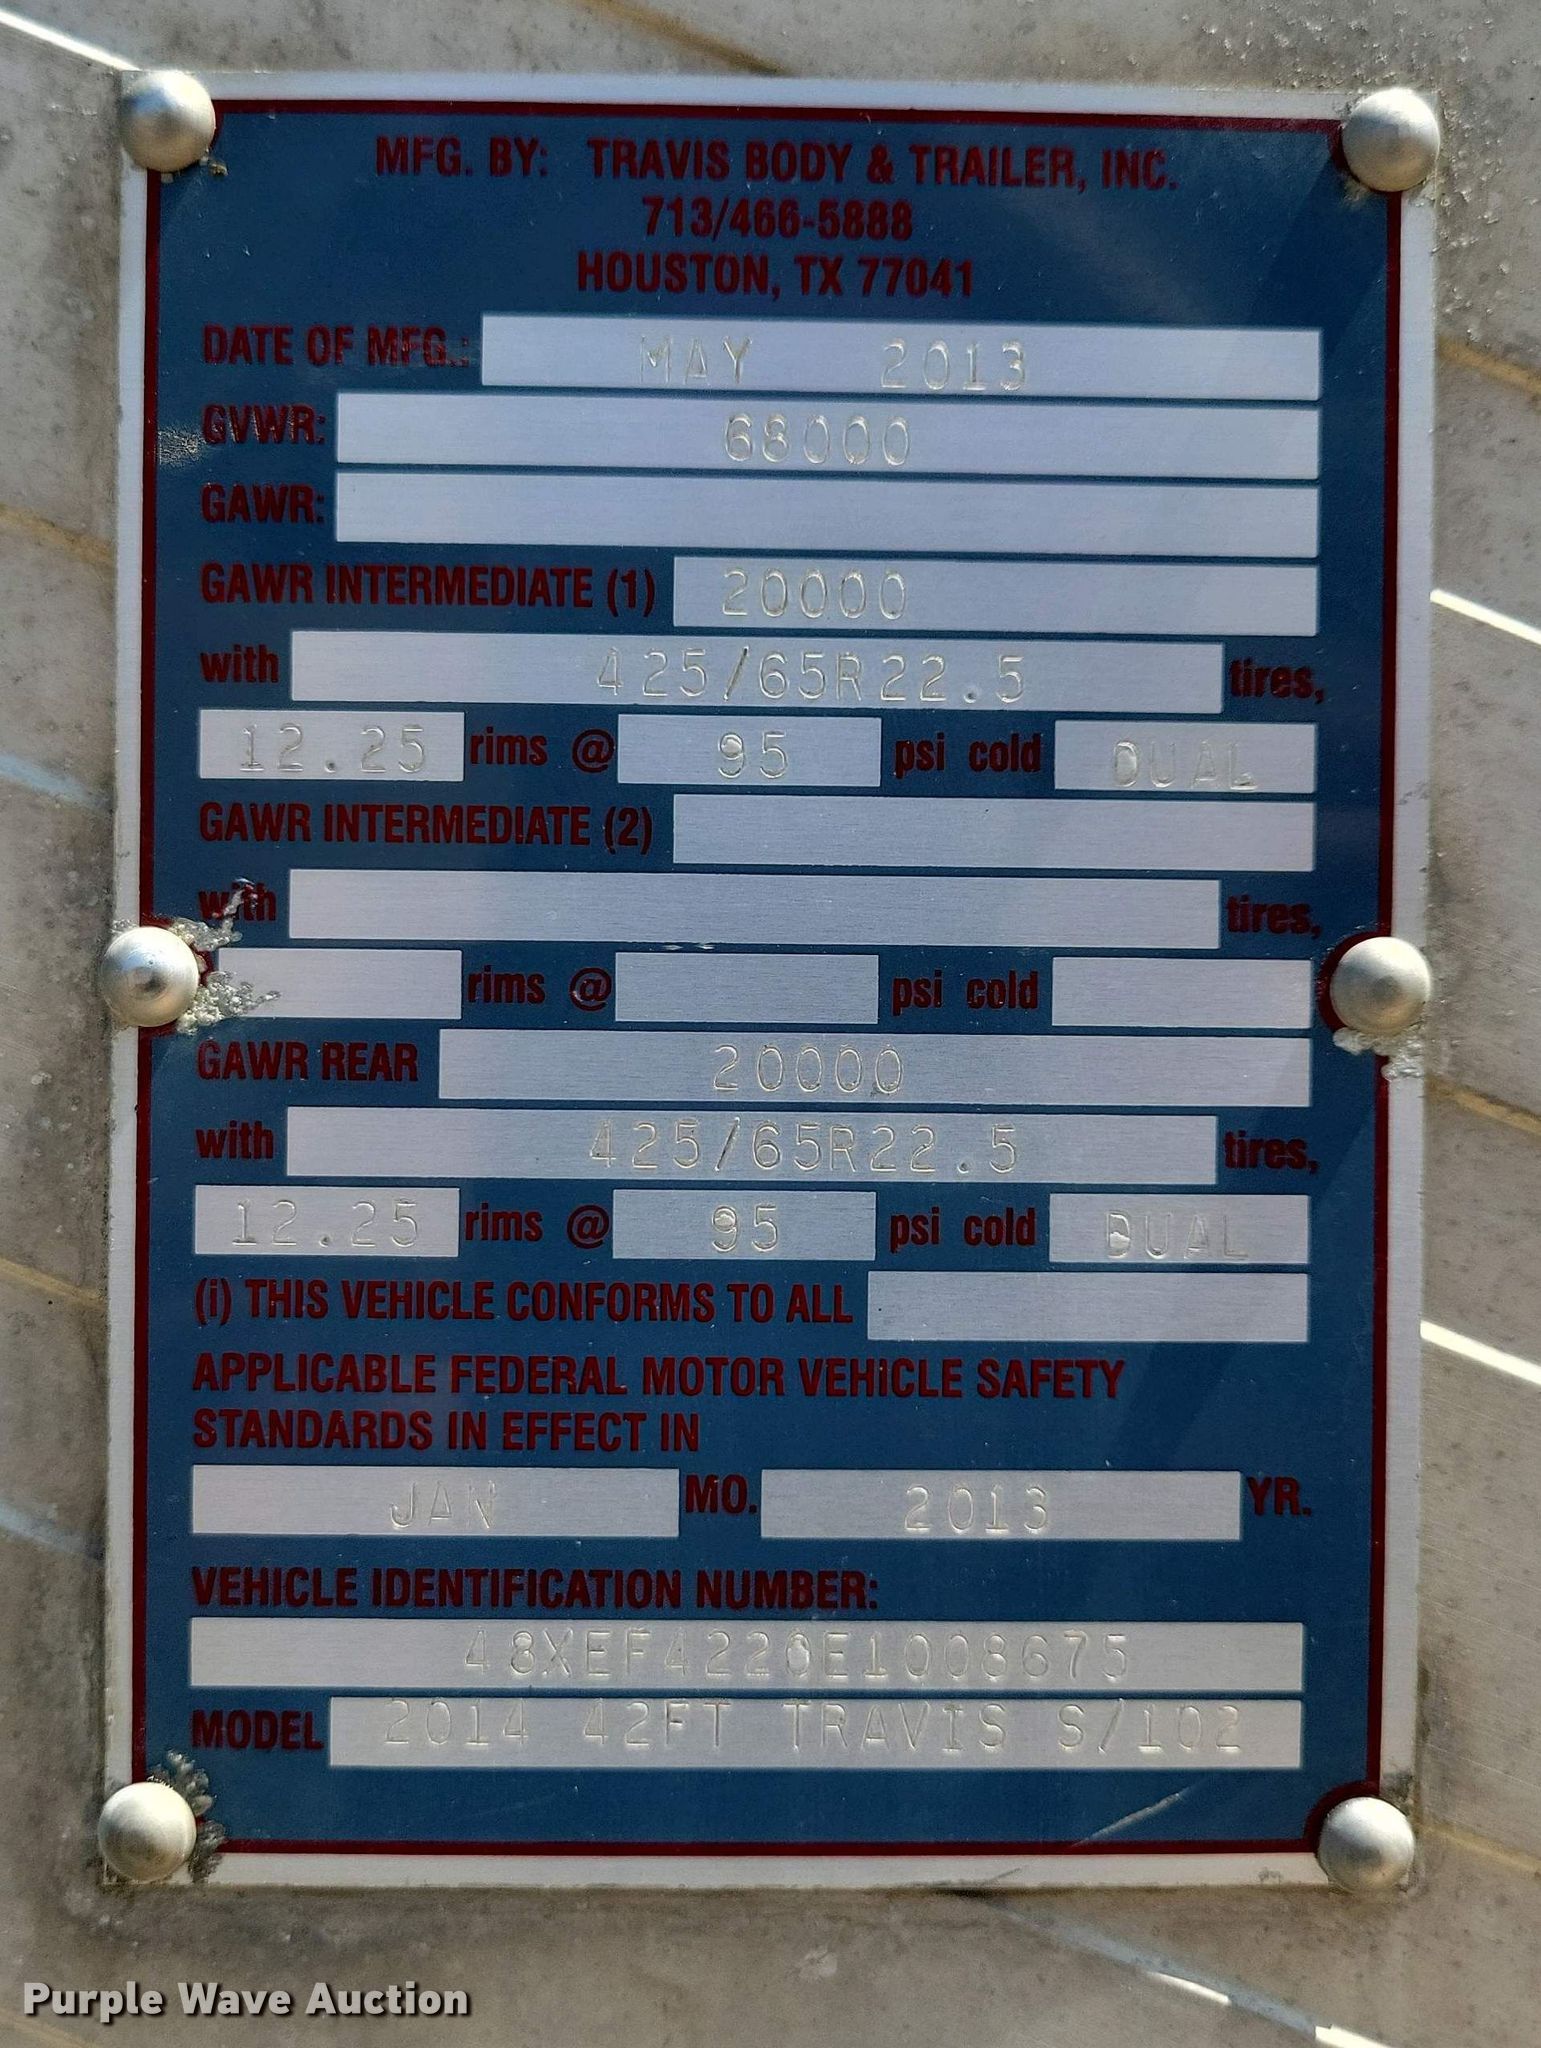 MFG. BY: TRAVIS BODY & TRAILER, INC.
713/466-5888
HOUSTON, TX 77041
DATE OF MFG.: MAY 2013
GVWR: 68000
GAWR:
GAWR INTERMEDIATE (1) 20000
with 425/65R22.5 tires,
12.25 rims @ 95 psi cold DUAL
GAWR INTERMEDIATE (2)
with tires,
rims @ psi cold
GAWR REAR 20000
with 425/65R22.5 tires,
12.25 rims @ 95 psi cold DUAL
(i) THIS VEHICLE CONFORMS TO ALL
APPLICABLE FEDERAL MOTOR VEHICLE SAFETY
STANDARDS IN EFFECT IN
JAN MO. 2013 YR.
VEHICLE IDENTIFICATION NUMBER:
48XEF4220E1008675
MODEL 2014 42FT TRAVIS S/102
Purple Wave Auction